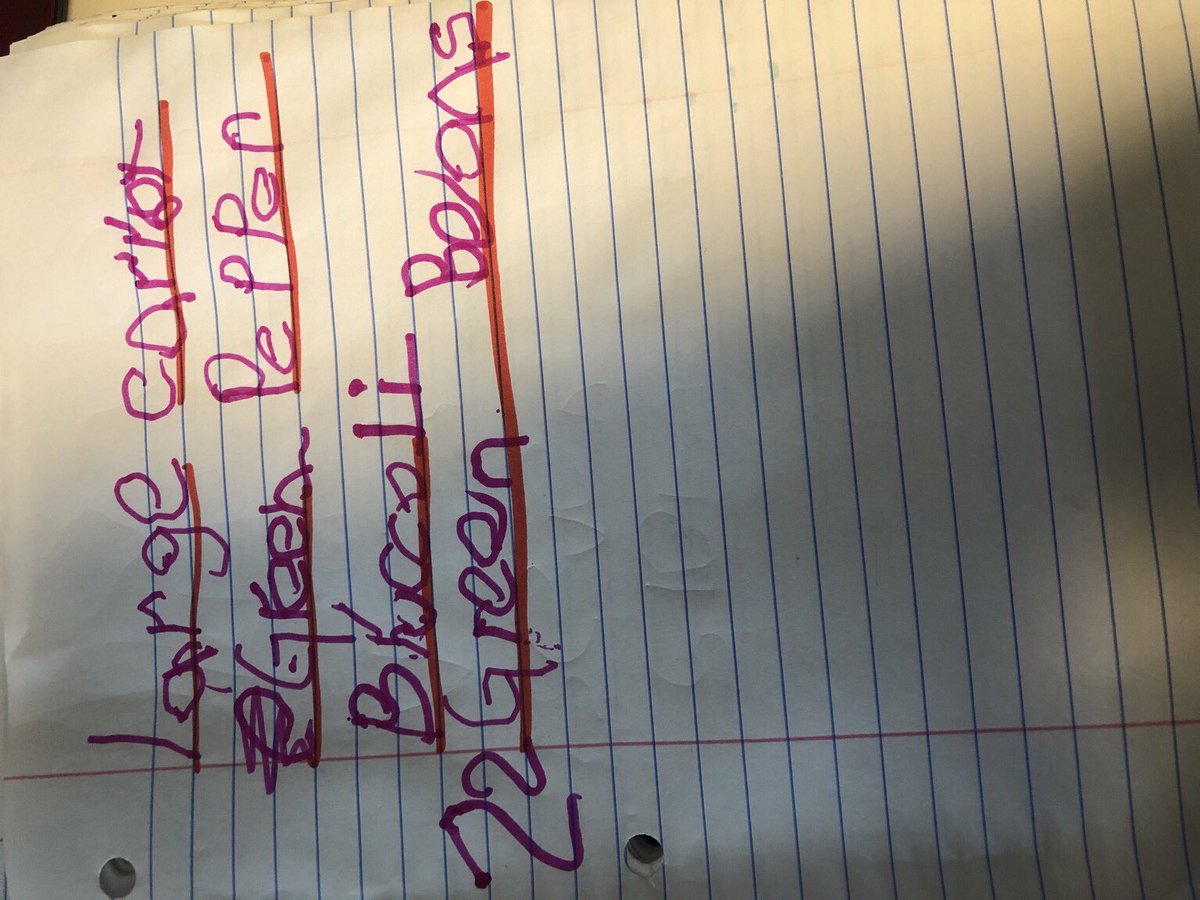 Large carrot
Green PePPer
Broccoli
22 Green Beans